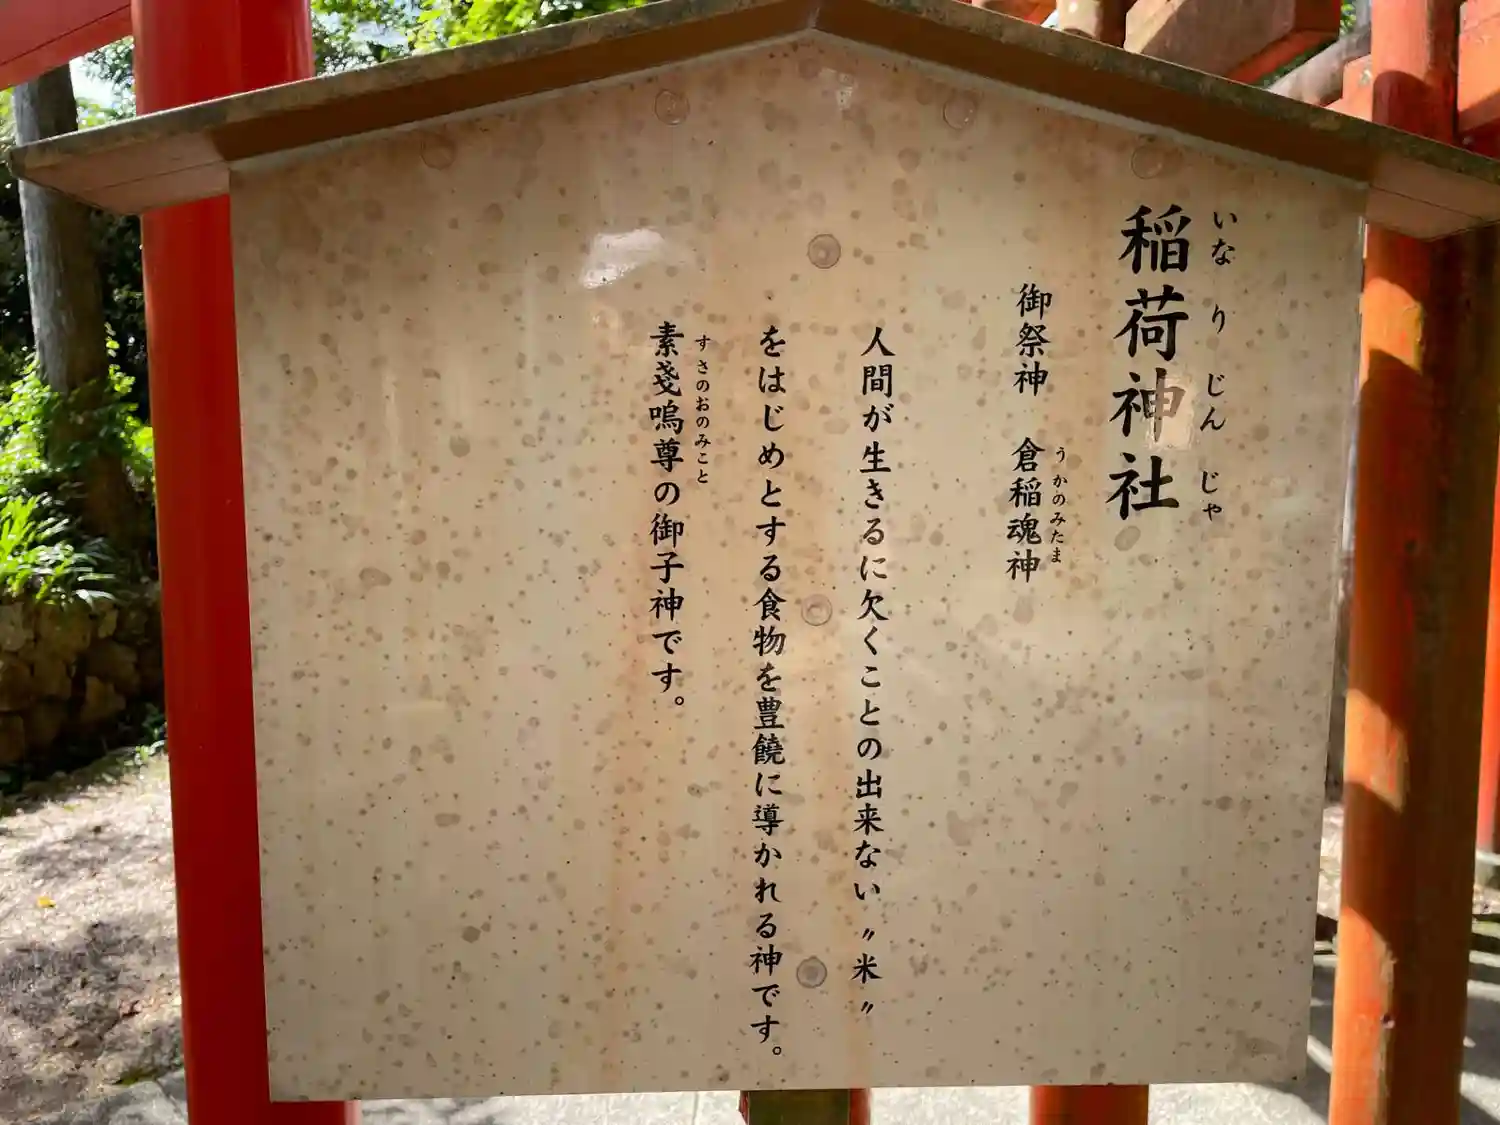 稲荷神社
いなりじんじゃ
御祭神 倉稲魂神
うかのみたま
人間が生きるに欠くことの出来ない〃米〃
をはじめとする食物を豊饒に導かれる神です。
素戔嗚尊の御子神です。
すさのおのみこと